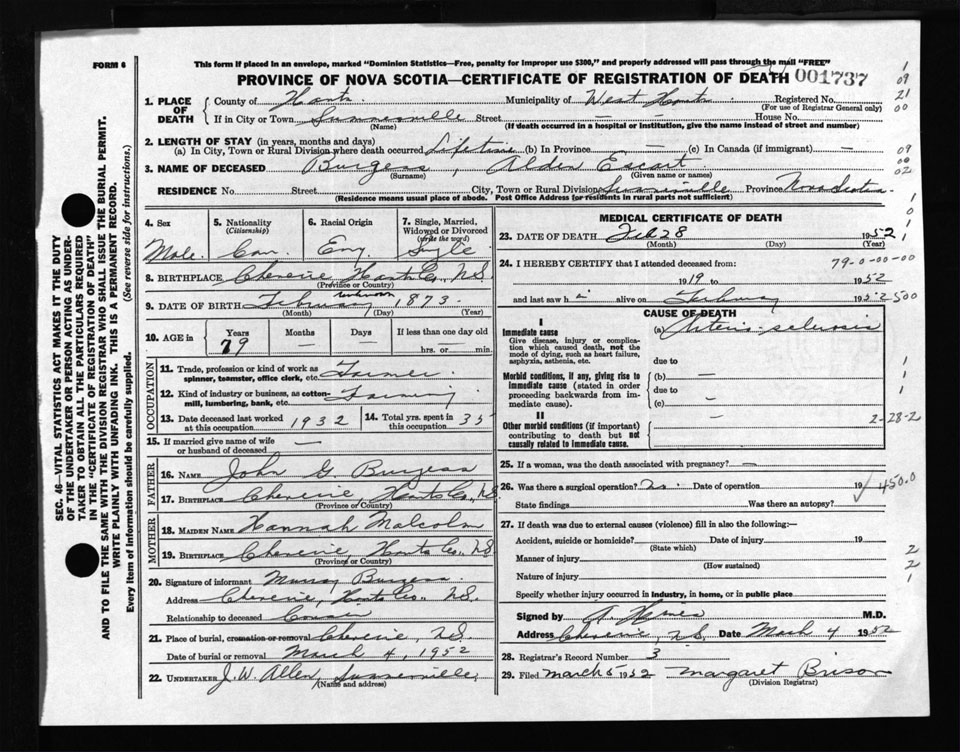 FORM 6
This form if placed in an envelope, marked "Dominion Statistics—Free, penalty for improper use $300," and properly addressed will pass through the mail "FREE"
PROVINCE OF NOVA SCOTIA—CERTIFICATE OF REGISTRATION OF DEATH 001737
1. PLACE OF DEATH { County of Hants Municipality of West Hants Registered No.
(For use of Registrar General only)
If in City or Town Summerville Street — — House No.
(Name) (If death occurred in a hospital or institution, give the name instead of street and number)
2. LENGTH OF STAY (in years, months and days)
(a) In City, Town or Rural Division where death occurred Lifetime (b) In Province — (c) In Canada (if immigrant) —
3. NAME OF DECEASED Burgess, Alden
(Surname) (Given name or names)
RESIDENCE No. Street City, Town or Rural Division Summerville Province Nova Scotia
(Residence means usual place of abode. Post Office Address for residents in rural parts not sufficient)
4. Sex Male.
5. Nationality (Citizenship) Can.
6. Racial Origin Eng.
7. Single, Married, Widowed or Divorced (write the word) Single
8. BIRTHPLACE Cheverie, Hants Co., N.S.
(Province or Country)
9. DATE OF BIRTH February unknown 1873.
(Month) (Day) (Year)
10. AGE in { Years 79 Months — Days — If less than one day
hrs. or — min.
OCCUPATION
11. Trade, profession or kind of work as spinner, teamster, office clerk, etc. Farmer.
12. Kind of industry or business, as cotton-mill, lumbering, bank, etc. Farming
13. Date deceased last worked at this occupation 1932
14. Total yrs. spent in this occupation 35
15. If married give name of wife or husband of deceased —
FATHER
16. NAME John G. Burgess
17. BIRTHPLACE Cheverie, Hants Co., N.S.
(Province or Country)
MOTHER
18. MAIDEN NAME Hannah Malcolm
19. BIRTHPLACE Cheverie, Hants Co., N.S.
(Province or Country)
20. Signature of informant Murray Burgess.
Address Cheverie, Hants Co., N.S.
Relationship to deceased Cousin
21. Place of burial, cremation or removal Cheverie, N.S.
Date of burial or removal March 4, 1952
22. UNDERTAKER J.W. Allen, Summerville,
(Name and address)
MEDICAL CERTIFICATE OF DEATH
23. DATE OF DEATH Feb 28 1952
(Month) (Day) (Year)
24. I HEREBY CERTIFY that I attended deceased from: 79-0-00-00
19 to 1952
and last saw h i alive on February 1952 500
CAUSE OF DEATH
I
Immediate cause
Give disease, injury or complication which caused death, not the mode of dying, such as heart failure, asphyxia, asthenia, etc.
(a) Arterio-sclerosis
due to
Morbid conditions, if any, giving rise to immediate cause (stated in order proceeding backwards from immediate cause).
(b) —
due to
(c) —
II
Other morbid conditions (if important) contributing to death but not causally related to immediate cause.
—
2-28-2
25. If a woman, was the death associated with pregnancy? —
26. Was there a surgical operation? No. Date of operation 19 450.0
State findings Was there an autopsy?
27. If death was due to external causes (violence) fill in also the following:—
Accident, suicide or homicide? Date of injury 19
(State which)
Manner of injury
(How sustained)
Nature of injury
Specify whether injury occurred in industry, in home, or in public place
Signed by M.D.
Address Cheverie, N.S. Date March 4 1952
28. Registrar's Record Number 3
29. Filed March 5 1952 Margaret Brison
(Division Registrar)
SEC. 46—VITAL STATISTICS ACT MAKES IT THE DUTY
OF THE UNDERTAKER OR PERSON ACTING AS UNDERTAKER TO OBTAIN ALL THE PARTICULARS REQUIRED
IN THE "CERTIFICATE OF REGISTRATION OF DEATH"
AND TO FILE THE SAME WITH THE DIVISION REGISTRAR WHO SHALL ISSUE THE BURIAL PERMIT.
WRITE PLAINLY WITH UNFADING INK. THIS IS A PERMANENT RECORD.
Every item of information should be carefully supplied. (See reverse side for instructions.)
1
09
21
00
09
00
02
1
0
1
1
1
1
1
2
2
1